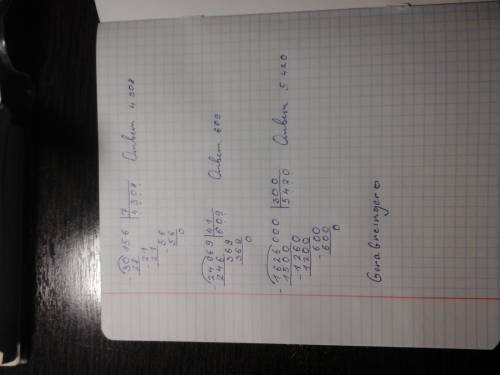 30156 | 7 Ответ 4308
28 | 4308
- 21
21
56
56
0
- 24969 | 41 Ответ 609
246 | 609
369
369
0
- 1626000 | 300 Ответ 5420
1500 | 5420
- 1260
1200
- 600
600
0